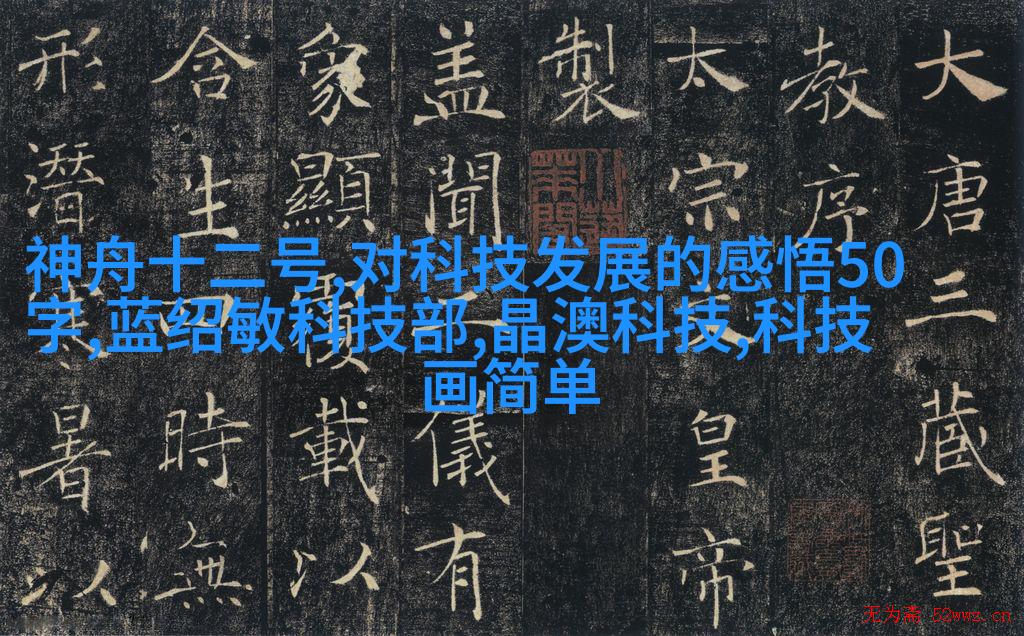 大唐三藏聖
教序
太宗文皇帝
製
盖聞二儀有
象顯覆載以
含生四時無
形潛寒暑以
神舟十二号,对科技发展的感悟50
字,蓝绍敏科技部,晶澳科技,科技
画简单
无为斋 52wwz.cn